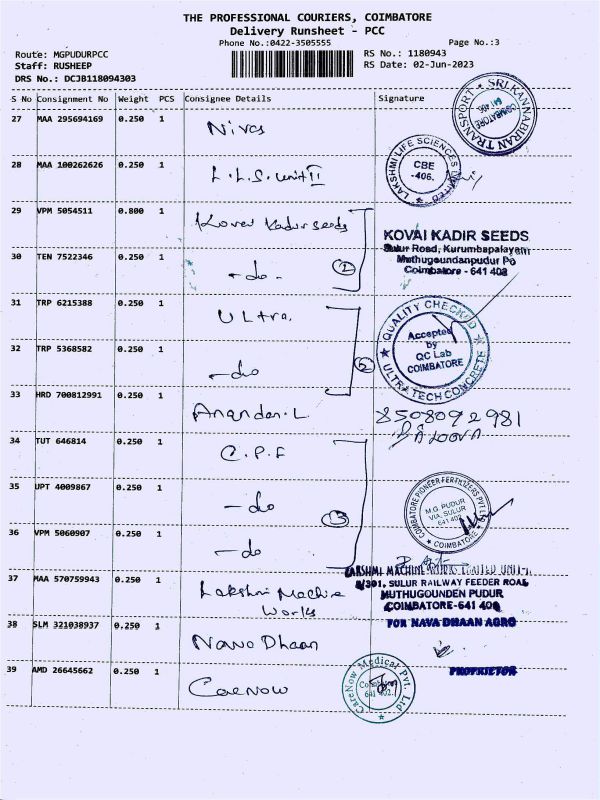 THE PROFESSIONAL COURIERS, COIMBATORE
Delivery Runsheet - PCC
Phone No.:0422-3505555
Page No.:3
Route: MGPUDURPCC
RS No.: 1180943
Staff: RUSHEEP
RS Date: 02-Jun-2023
DRS No.: DCJB118094303
S No Consignment No Weight PCS Consignee Details Signature
27 MAA 295694169 0.250 1 Nivas
SRI KANNABIRAN TRANSPORT
COIMBATORE
641 406.
28 MAA 100262626 0.250 1 L.L.S. unit II
LAKSHMI LIFE SCIENCES LIMITED
CBE
-406.
29 VPM 5054511 0.800 1 Kovai Kadir seeds
KOVAI KADIR SEEDS
Sulur Road, Kurumbapalayam
Muthugoundanpudur Po
Coimbatore - 641 402
30 TEN 7522346 0.250 1 - do - 2
31 TRP 6215388 0.250 1 Ultra.
QUALITY CHECKED
Accepted
by
QC Lab
COIMBATORE
ULTRA TECH CONCRETE
32 TRP 5368582 0.250 1 - do 2
33 HRD 700812991 0.250 1 Anandan.L 8508092981
34 TUT 646814 0.250 1 C.P.F
35 UPT 4009867 0.250 1 - do 3
COIMBATORE PIONEER FERTILIZERS PVT LTD
M.G. PUDUR
VIA, SULUR
641 402
COIMBATORE
36 VPM 5060907 0.250 1 - do
LAKSHMI MACHINE WORKS LIMITED UNIT-I
37 MAA 570759943 0.250 1 Lakshmi Machine
Works
SULUR RAILWAY FEEDER ROAD
MUTHUGOUNDEN PUDUR
COIMBATORE-641 406
38 SLM 321038937 0.250 1 Navo Dhaan
FOR NAVA DHAAN AGRO
PROPRIETOR
39 AMD 26645662 0.250 1 CareNow
CareNow Medical Pvt. Ltd
641 402.